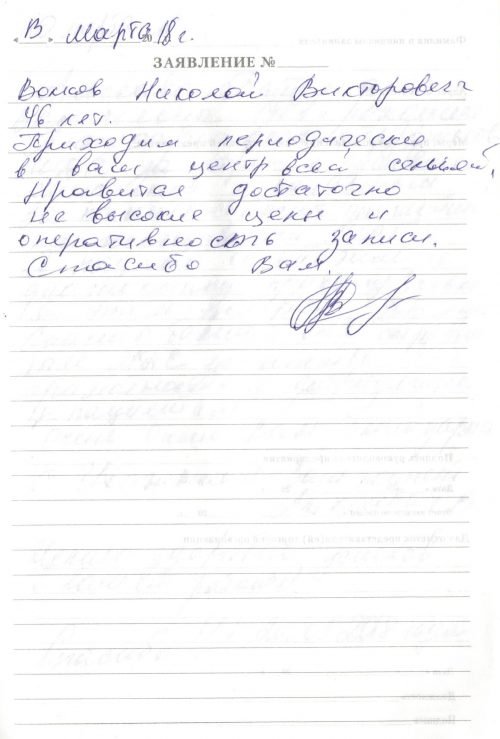 Марта 18 г.
ЗАЯВЛЕНИЕ №
Волков Николай Викторович
46 лет.
Приходим периодически
в ваш центр всей семьёй.
Нравится достаточно
не высокие цены и
оперативность записи.
Спасибо Вам.